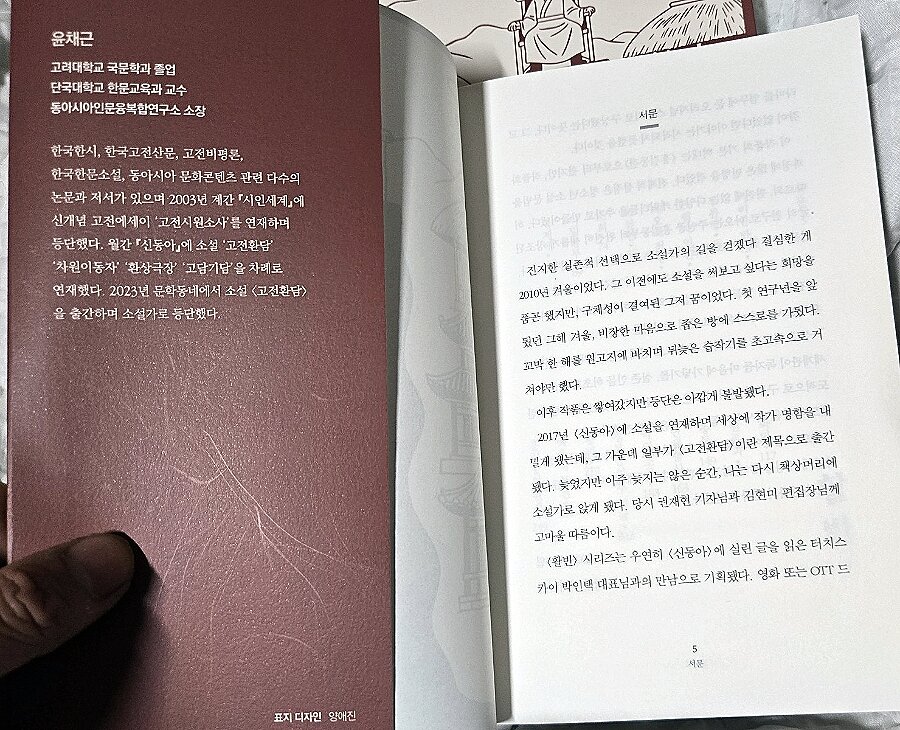 윤채근
고려대학교 국문학과 졸업
단국대학교 한문교육과 교수
동아시아인문융복합연구소 소장
한국한시, 한국고전산문, 고전비평론,
한국한문소설, 동아시아 문화콘텐츠 관련 다수의
논문과 저서가 있으며 2003년 계간 『시인세계』에
신개념 고전에세이 ‘고전시원소사’를 연재하며
등단했다. 월간 『신동아』에 소설 ‘고전환담’
‘차원이동자’ ‘환상극장’ ‘고담기담’을 차례로
연재했다. 2023년 문학동네에서 소설 〈고전환담〉
을 출간하며 소설가로 등단했다.
표지 디자인 양애진
서문
진지한 실존적 선택으로 소설가의 길을 걷겠다 결심한 게
2010년 겨울이었다. 그 이전에도 소설을 써보고 싶다는 희망을
품곤 했지만, 구체성이 결여된 그저 꿈이었다. 첫 연구년을 앞
뒀던 그해 겨울, 비장한 마음으로 좁은 방에 스스로를 가뒀다.
꼬박 한 해를 원고지에 바치며 뒤늦은 습작기를 초고속으로 거
쳐야만 했다.
이후 작품은 쌓여갔지만 등단은 아깝게 불발됐다.
2017년 〈신동아〉에 소설을 연재하며 세상에 작가 명함을 내
밀게 됐는데, 그 가운데 일부가 〈고전환담〉이란 제목으로 출간
됐다. 늦었지만 아주 늦지는 않은 순간, 나는 다시 책상머리에
소설가로 앉게 됐다. 당시 권재현 기자님과 김현미 편집장님께
고마울 따름이다.
〈활빈〉 시리즈는 우연히 〈신동아〉에 실린 글을 읽은 터치스
카이 박인택 대표님과의 만남으로 기획됐다. 영화 또는 OTT 드
5
서문